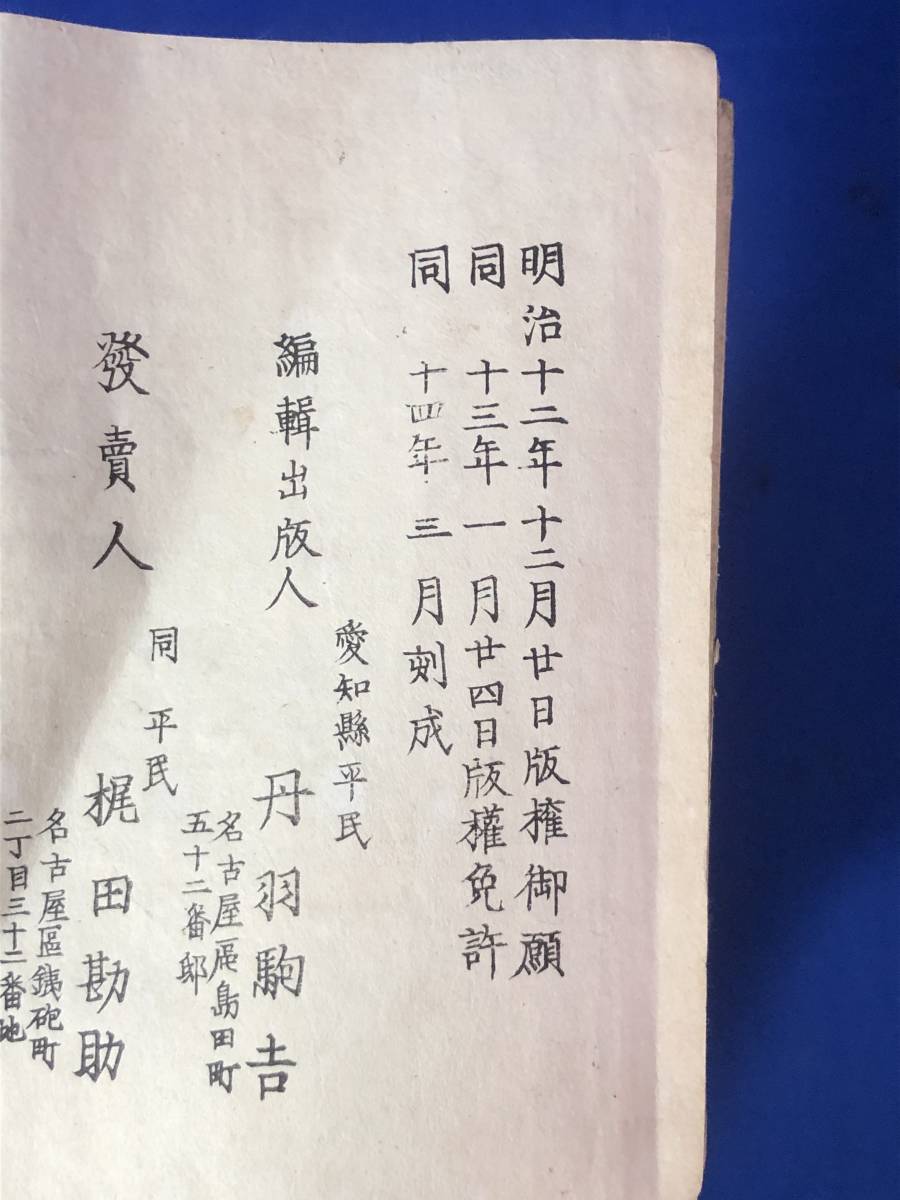 明治十二年十二月廿日版権御願
同 十三年一月廿四日版權免許
同 十四年三月刻成
愛知縣平民
編輯出版人 丹羽駒吉
名古屋區島田町
五十二番邸
同 平民
發賣人 梶田勘助
名古屋區鉄砲町
二丁目三十二番地